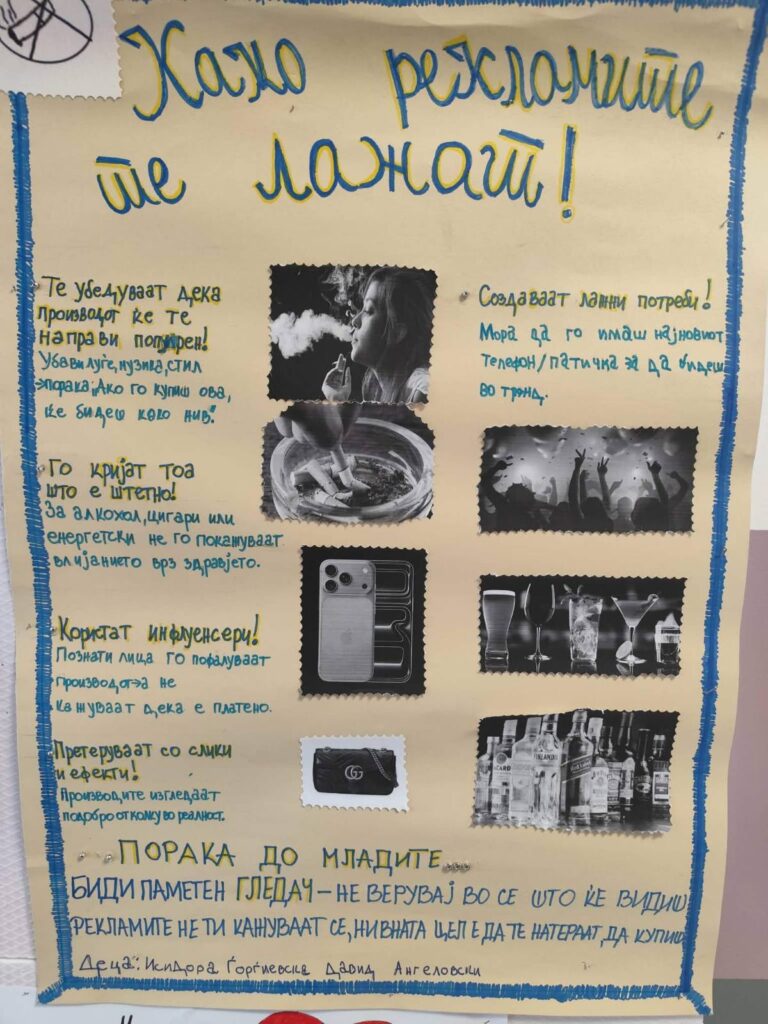 Како рекламите
те лажат!
Те убедуваат дека
производот ќе те
направи популрен!
Убави луѓе, музика, стил
→порака: „Ако го купиш ова,
ќе бидеш како нив."
Го кријат тоа
што е штетно!
За алкохол, цигари или
енергетски не го покажуваат
влијанието врз здравјето.
Користат инфлуенсери!
Познати лица го пофалуваат
производот→а не
кажуваат дека е платено.
Претеруваат со слики
и ефекти!
Производите изгледаат
подобро отколку во реалност.
Создаваат лажни потреби!
Мора да го имаш најновиот
телефон/патичка за да бидеш
во тренд.
GG
BACARDI
FINLANDIA
ПОРАКА ДО МЛАДИТЕ
БИДИ ПАМЕТЕН ГЛЕДАЧ – НЕ ВЕРУВАЈ ВО СЕ ШТО ЌЕ ВИДИШ
РЕКЛАМИТЕ НЕ ТИ КАЖУВААТ СЕ, НИВНАТА ЦЕЛ Е ДА ТЕ НАТЕРААТ ДА КУПИШ
Деца: Исидора Ѓорѓиевска Давид Ангеловски